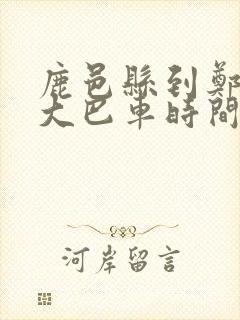 鹿邑縣到鄭
大巴車時間
河岸留言